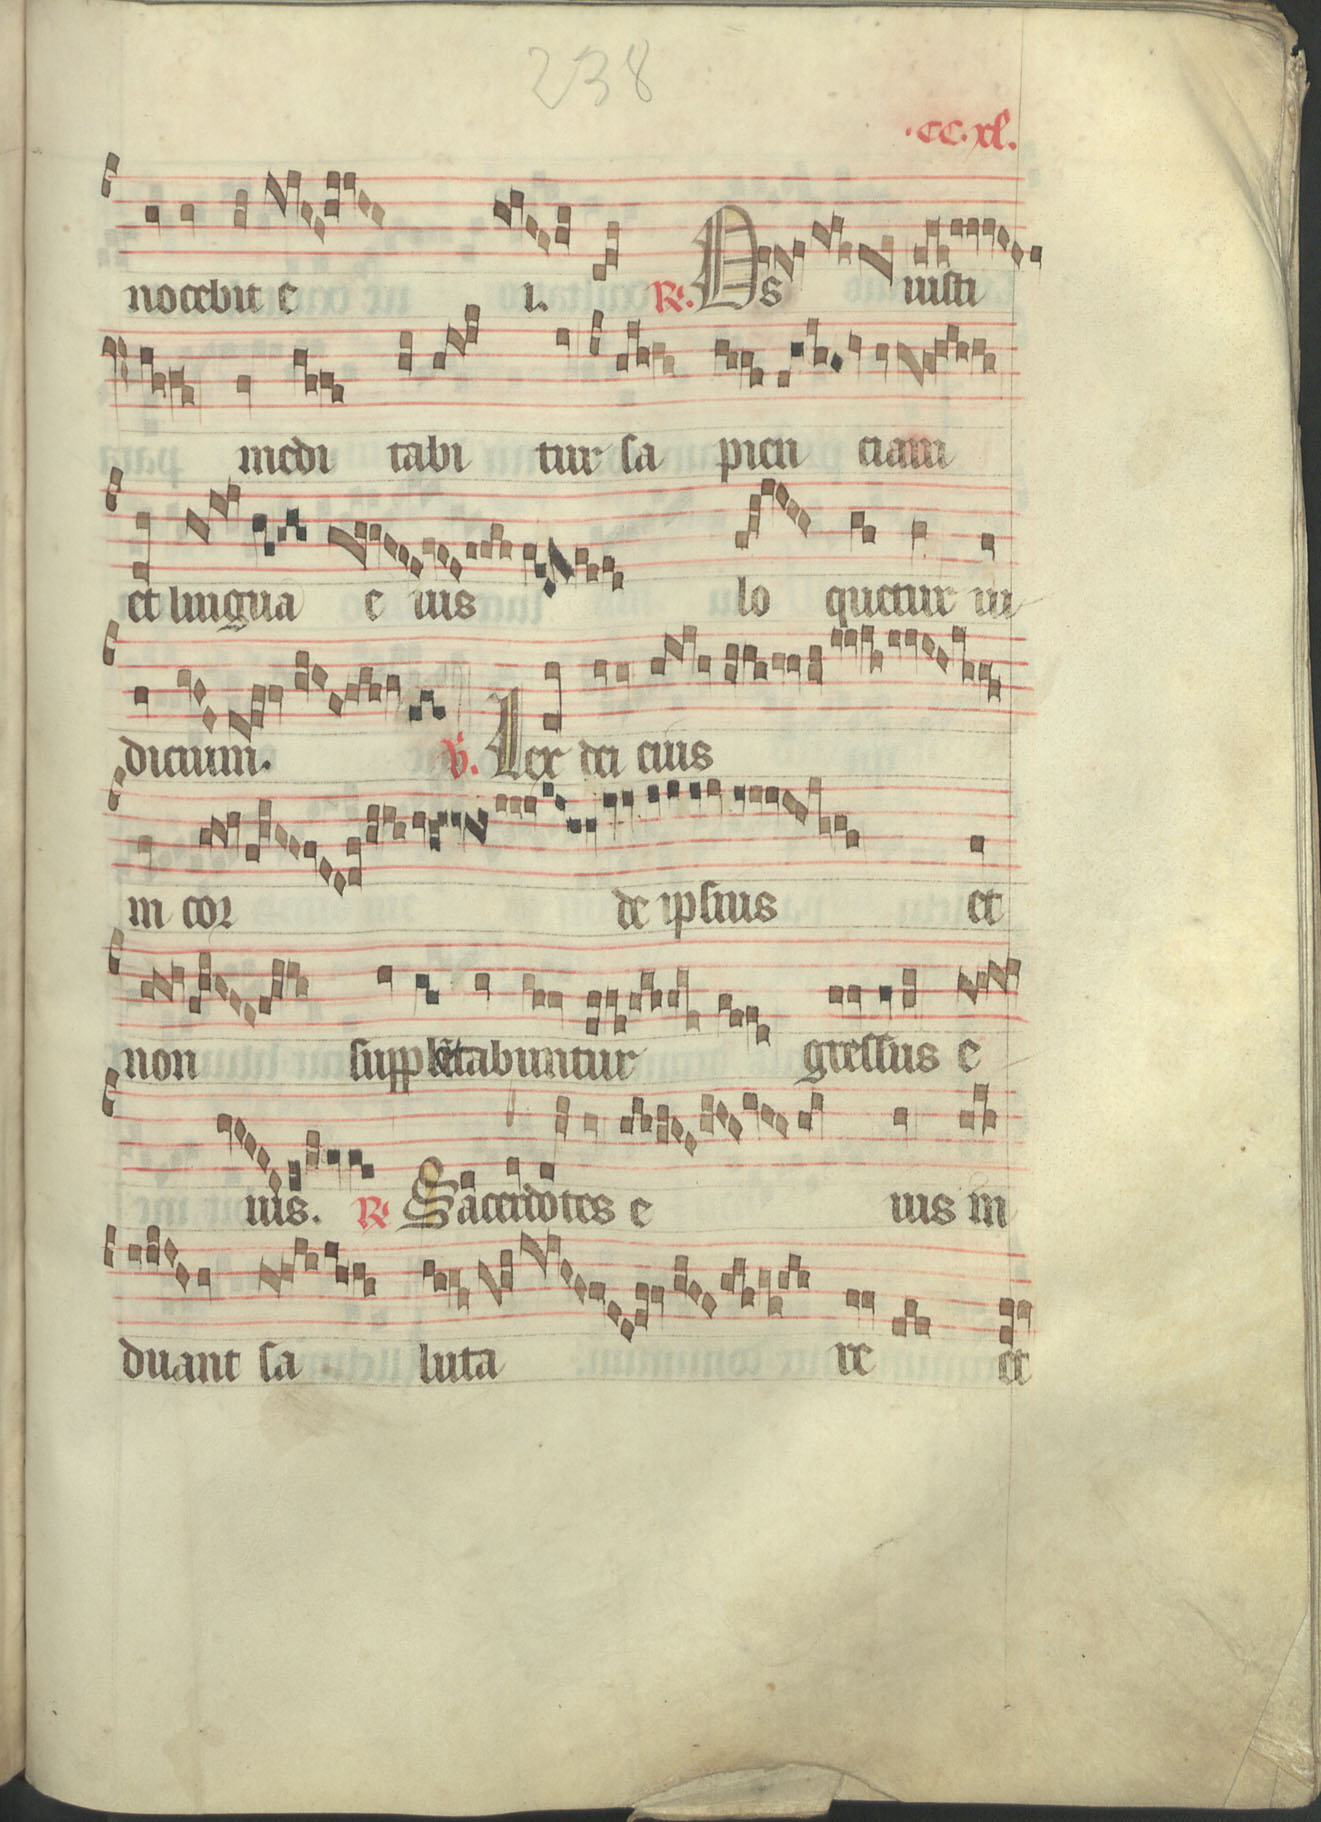 238
·cc·xl.
nocebit e i. R. Os iusti
medi tabi tur sa pien ciam
et lingua e ius lo quetur iu
dicium. V. Lex dei eius
in cor de ipsius et
non supplantabuntur gressus e
ius. R Sacerdotes e ius in
duant sa luta re et